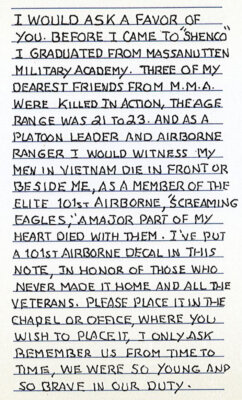 I WOULD ASK A FAVOR OF
YOU. BEFORE I CAME TO "SHENCO"
I GRADUATED FROM MASSANUTTEN
MILITARY ACADEMY. THREE OF MY
DEAREST FRIENDS FROM M.M.A.
WERE KILLED IN ACTION, THE AGE
RANGE WAS 21 TO 23. AND AS A
PLATOON LEADER AND AIRBORNE
RANGER I WOULD WITNESS MY
MEN IN VIETNAM DIE IN FRONT OR
BESIDE ME, AS A MEMBER OF THE
ELITE 101st AIRBORNE, "SCREAMING
EAGLES," A MAJOR PART OF MY
HEART DIED WITH THEM. I'VE PUT
A 101st AIRBORNE DECAL IN THIS
NOTE, IN HONOR OF THOSE WHO
NEVER MADE IT HOME AND ALL THE
VETERANS. PLEASE PLACE IT IN THE
CHAPEL OR OFFICE, WHERE YOU
WISH TO PLACE IT, I ONLY ASK
REMEMBER US FROM TIME TO
TIME, WE WERE SO YOUNG AND
SO BRAVE IN OUR DUTY.